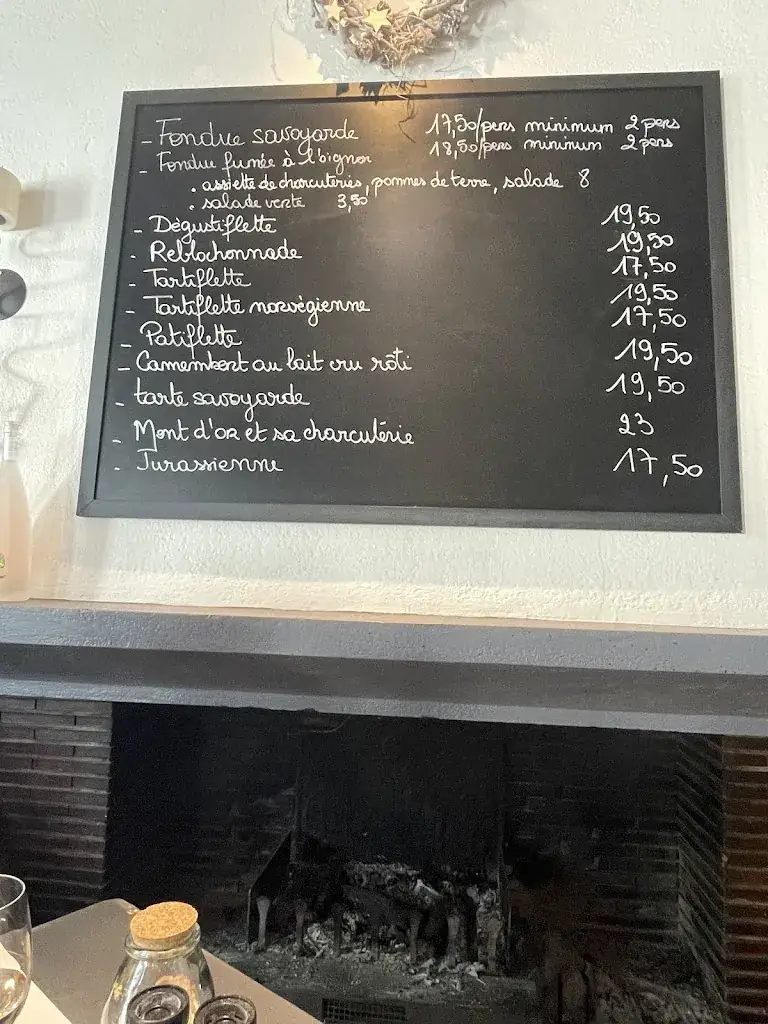 - Fondue savoyarde 17,50/pers minimum 2 pers
- Fondue fumée à l'bignon 18,50/pers minimum 2 pers
. assiette de charcuteries, pommes de terre, salade 8
. salade verte 3,50
- Dégustiflette 19,50
- Reblochonnade 19,50
- Tartiflette 17,50
- Tartiflette norvégienne 19,50
- Patiflette 17,50
- Camembert au lait cru rôti 19,50
- tarte savoyarde 19,50
- Mont d'or et sa charcutérie 23
- Jurassienne 17,50